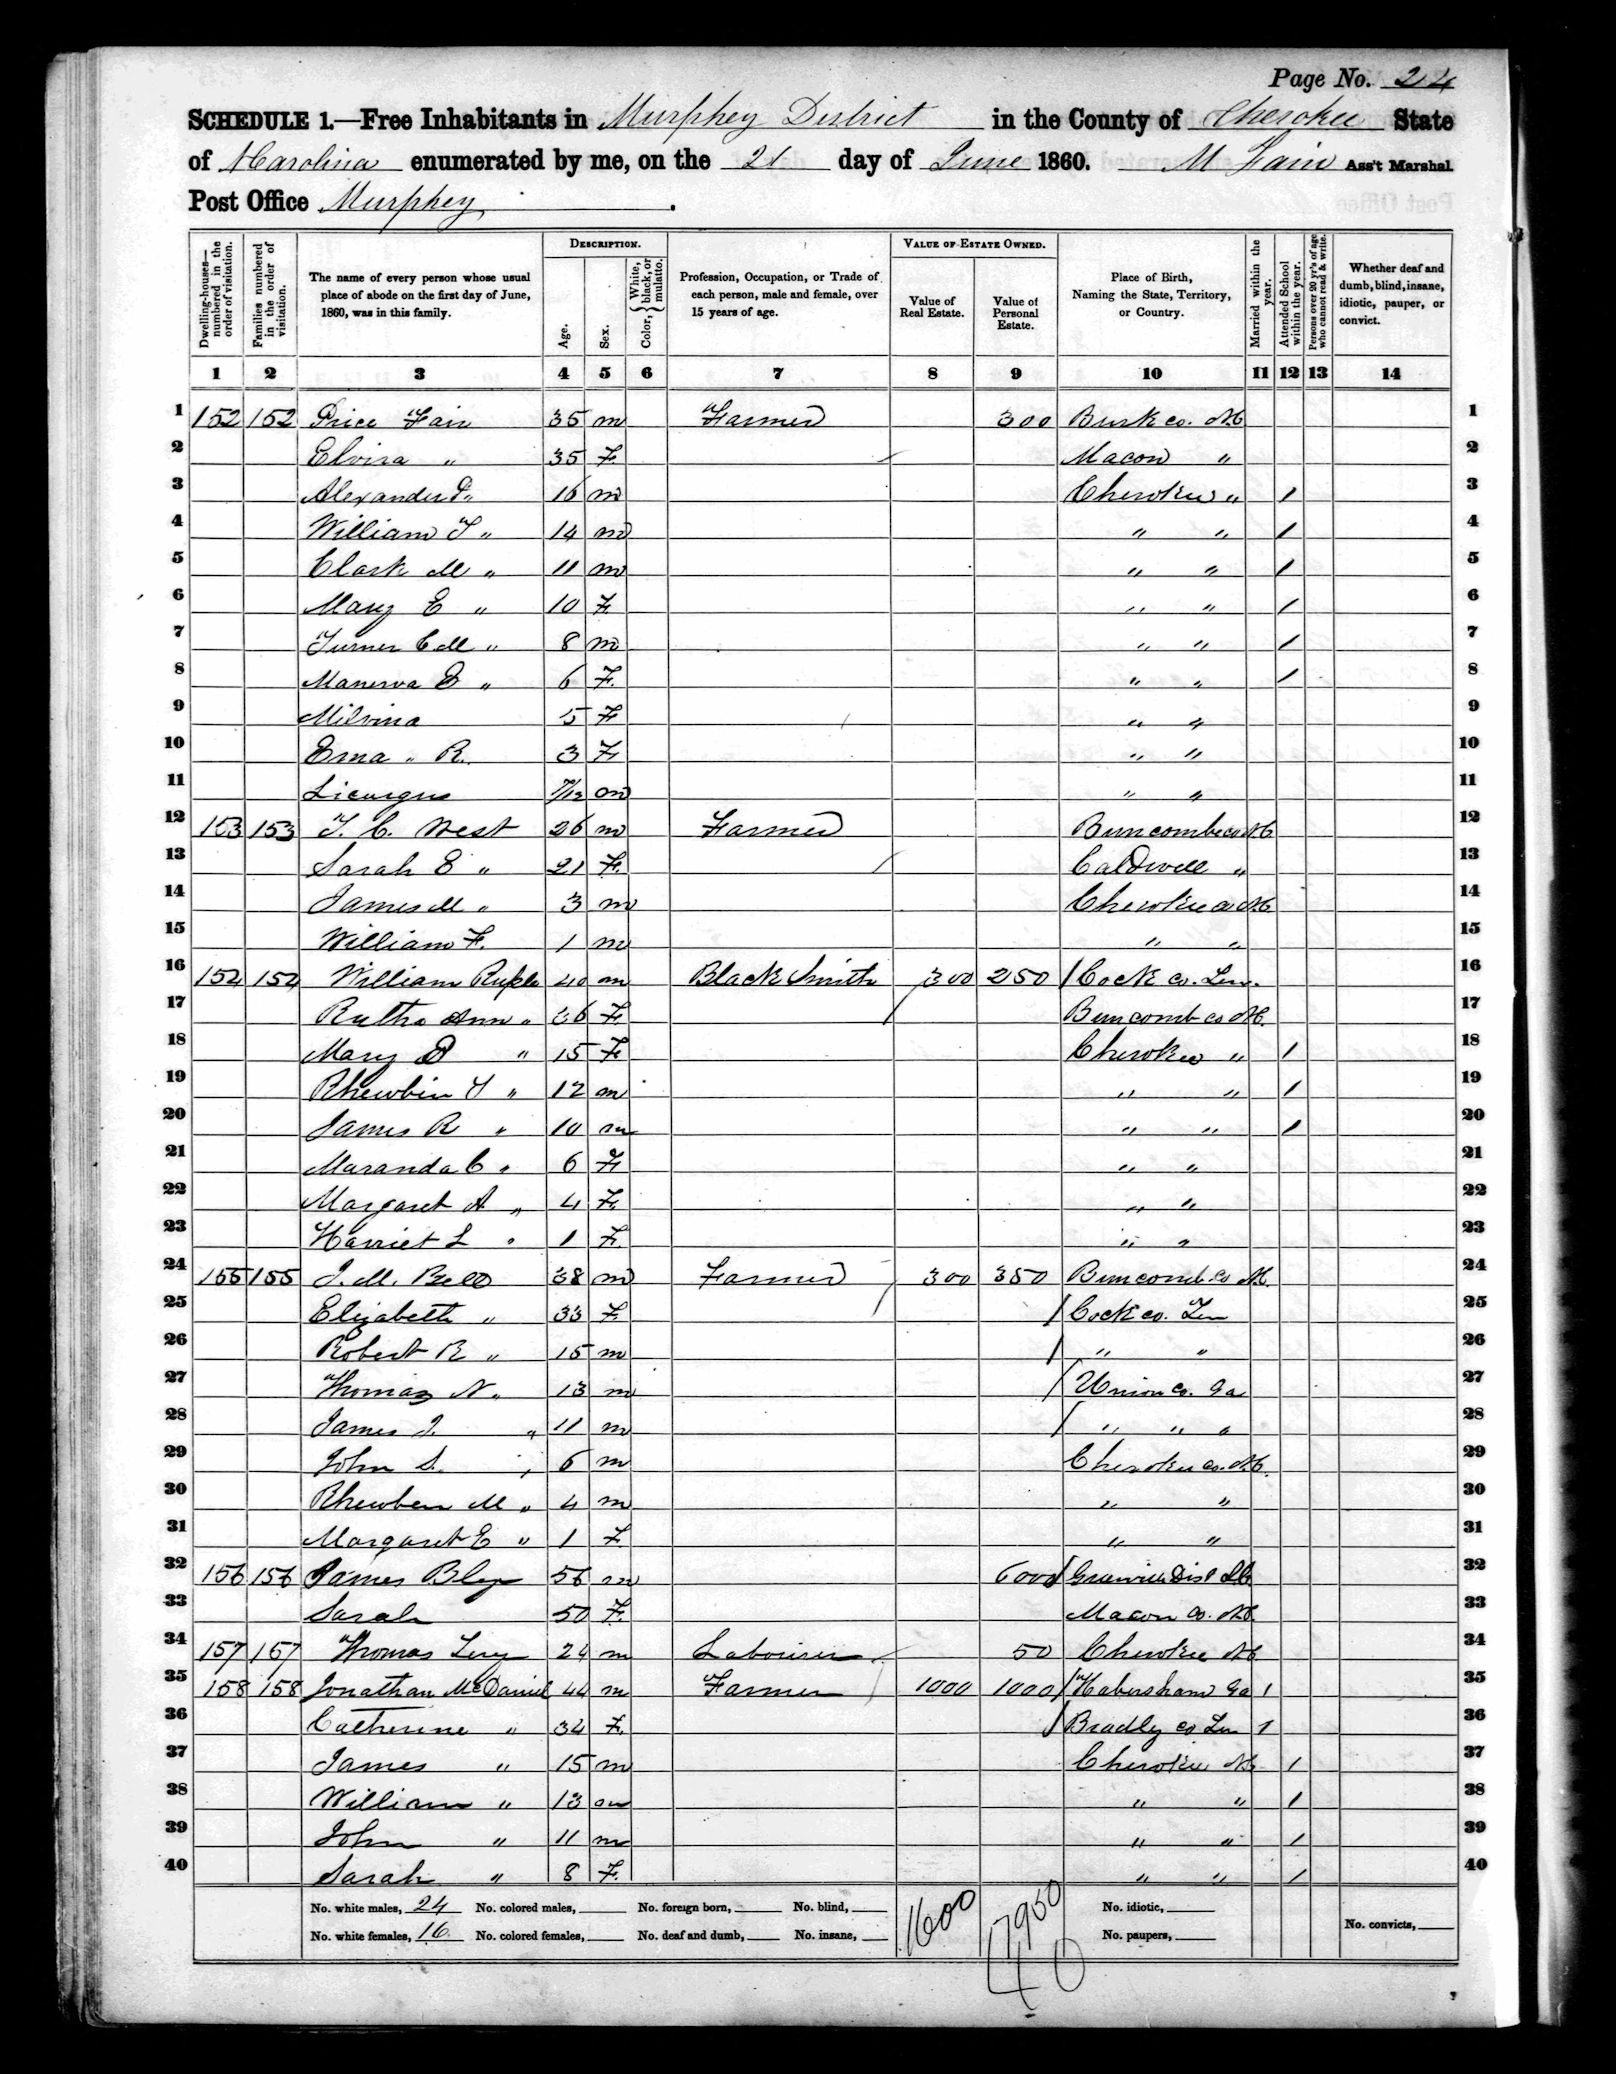 Page No. 24
SCHEDULE 1.—Free Inhabitants in Murphey District in the County of Cherokee State
of N Carolina enumerated by me, on the 21 day of June 1860. M Fain Ass't Marshal.
Post Office Murphey.
Dwelling-houses—numbered in the order of visitation. Families numbered in the order of visitation. The name of every person whose usual place of abode on the first day of June, 1860, was in this family. DESCRIPTION. Age. Sex. Color, {White, black, or mulatto. Profession, Occupation, or Trade of each person, male and female, over 15 years of age. VALUE OF ESTATE OWNED. Value of Real Estate. Value of Personal Estate. Place of Birth, Naming the State, Territory, or Country. Married within the year. Attended School within the year. Persons over 20 yr's of age who cannot read & write. Whether deaf and dumb, blind, insane, idiotic, pauper, or convict.
1 2 3 4 5 6 7 8 9 10 11 12 13 14
1 152 152 Price Fain 35 m Farmer 300 Burk co. N.C 1
2 Elvira " 35 F. Macon " 2
3 Alexander P " 16 m Cherokee " 1 3
4 William T " 14 m " " 1 4
5 Clark M " 11 m " " 1 5
6 Mary E " 10 F. " " 1 6
7 Turner C M " 8 m " " 1 7
8 Manerva E " 6 F. " " 1 8
9 Milvina 5 F " " 9
10 Ema " R. 3 F. " " 10
11 Licurgus 7/12 m " " 11
12 153 153 T. C. West 26 m Farmer Buncombe co N.C 12
13 Sarah E " 21 F. Caldwell " 13
14 James M " 3 m Cherokee co N.C 14
15 William F. 1 m " " 15
16 154 154 William 40 m Black Smith 300 250 / Cock co. Ten. 16
17 Rutha Ann " 36 F. Buncomb co N.C. 17
18 Mary " 15 F. Cherokee " 1 18
19 Rhewbin T " 12 m " " 1 19
20 James R " 10 m " " 1 20
21 Maranda C " 6 F " " 21
22 Margaret A " 4 F. " " 22
23 Harriet L " 1 F. " " 23
24 155 155 J. M. Bell 38 m Farmer 300 350 Buncomb co N.C. 24
25 Elizabeth " 33 F. / Cock co. Ten 25
26 Robert R " 15 m / " " 26
27 Thomas N " 13 m / Union co. Ga 27
28 James J. " 11 m / " " " 28
29 John S. " 6 m Cherokee co. N.C. 29
30 Rhewben M " 4 m " " 30
31 Margaret E " 1 F " " 31
32 156 156 James 56 m 6000 / Greenville Dist S.C. 32
33 Sarah 50 F. Macon co. N.C. 33
34 157 157 Thomas 24 m Labourer 50 Cherokee N.C 34
35 158 158 Jonathan McDaniel 44 m Farmer 1000 1000 / Habersham Ga 1 35
36 Catherine " 34 F. / Bradly co Ten 1 36
37 James " 15 m Cherokee N.C 1 37
38 William " 13 m " " 1 38
39 John " 11 m " " 1 39
40 Sarah " 8 F. " " 1 40
No. white males, 24 No. colored males, No. foreign born, No. blind, 1600 7950 No. idiotic,
No. white females, 16 No. colored females, No. deaf and dumb, No. insane, No. paupers, No. convicts,
40